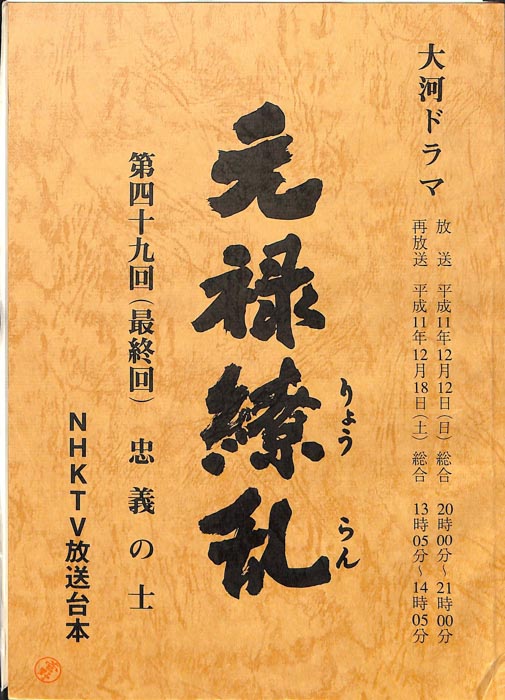 大河ドラマ
放送 平成11年12月12日(日) 総合 20時00分〜21時00分
再放送 平成11年12月18日(土) 総合 13時05分〜14時05分
元禄繚乱
りょう らん
第四十九回(最終回) 忠義の士
NHKTV放送台本